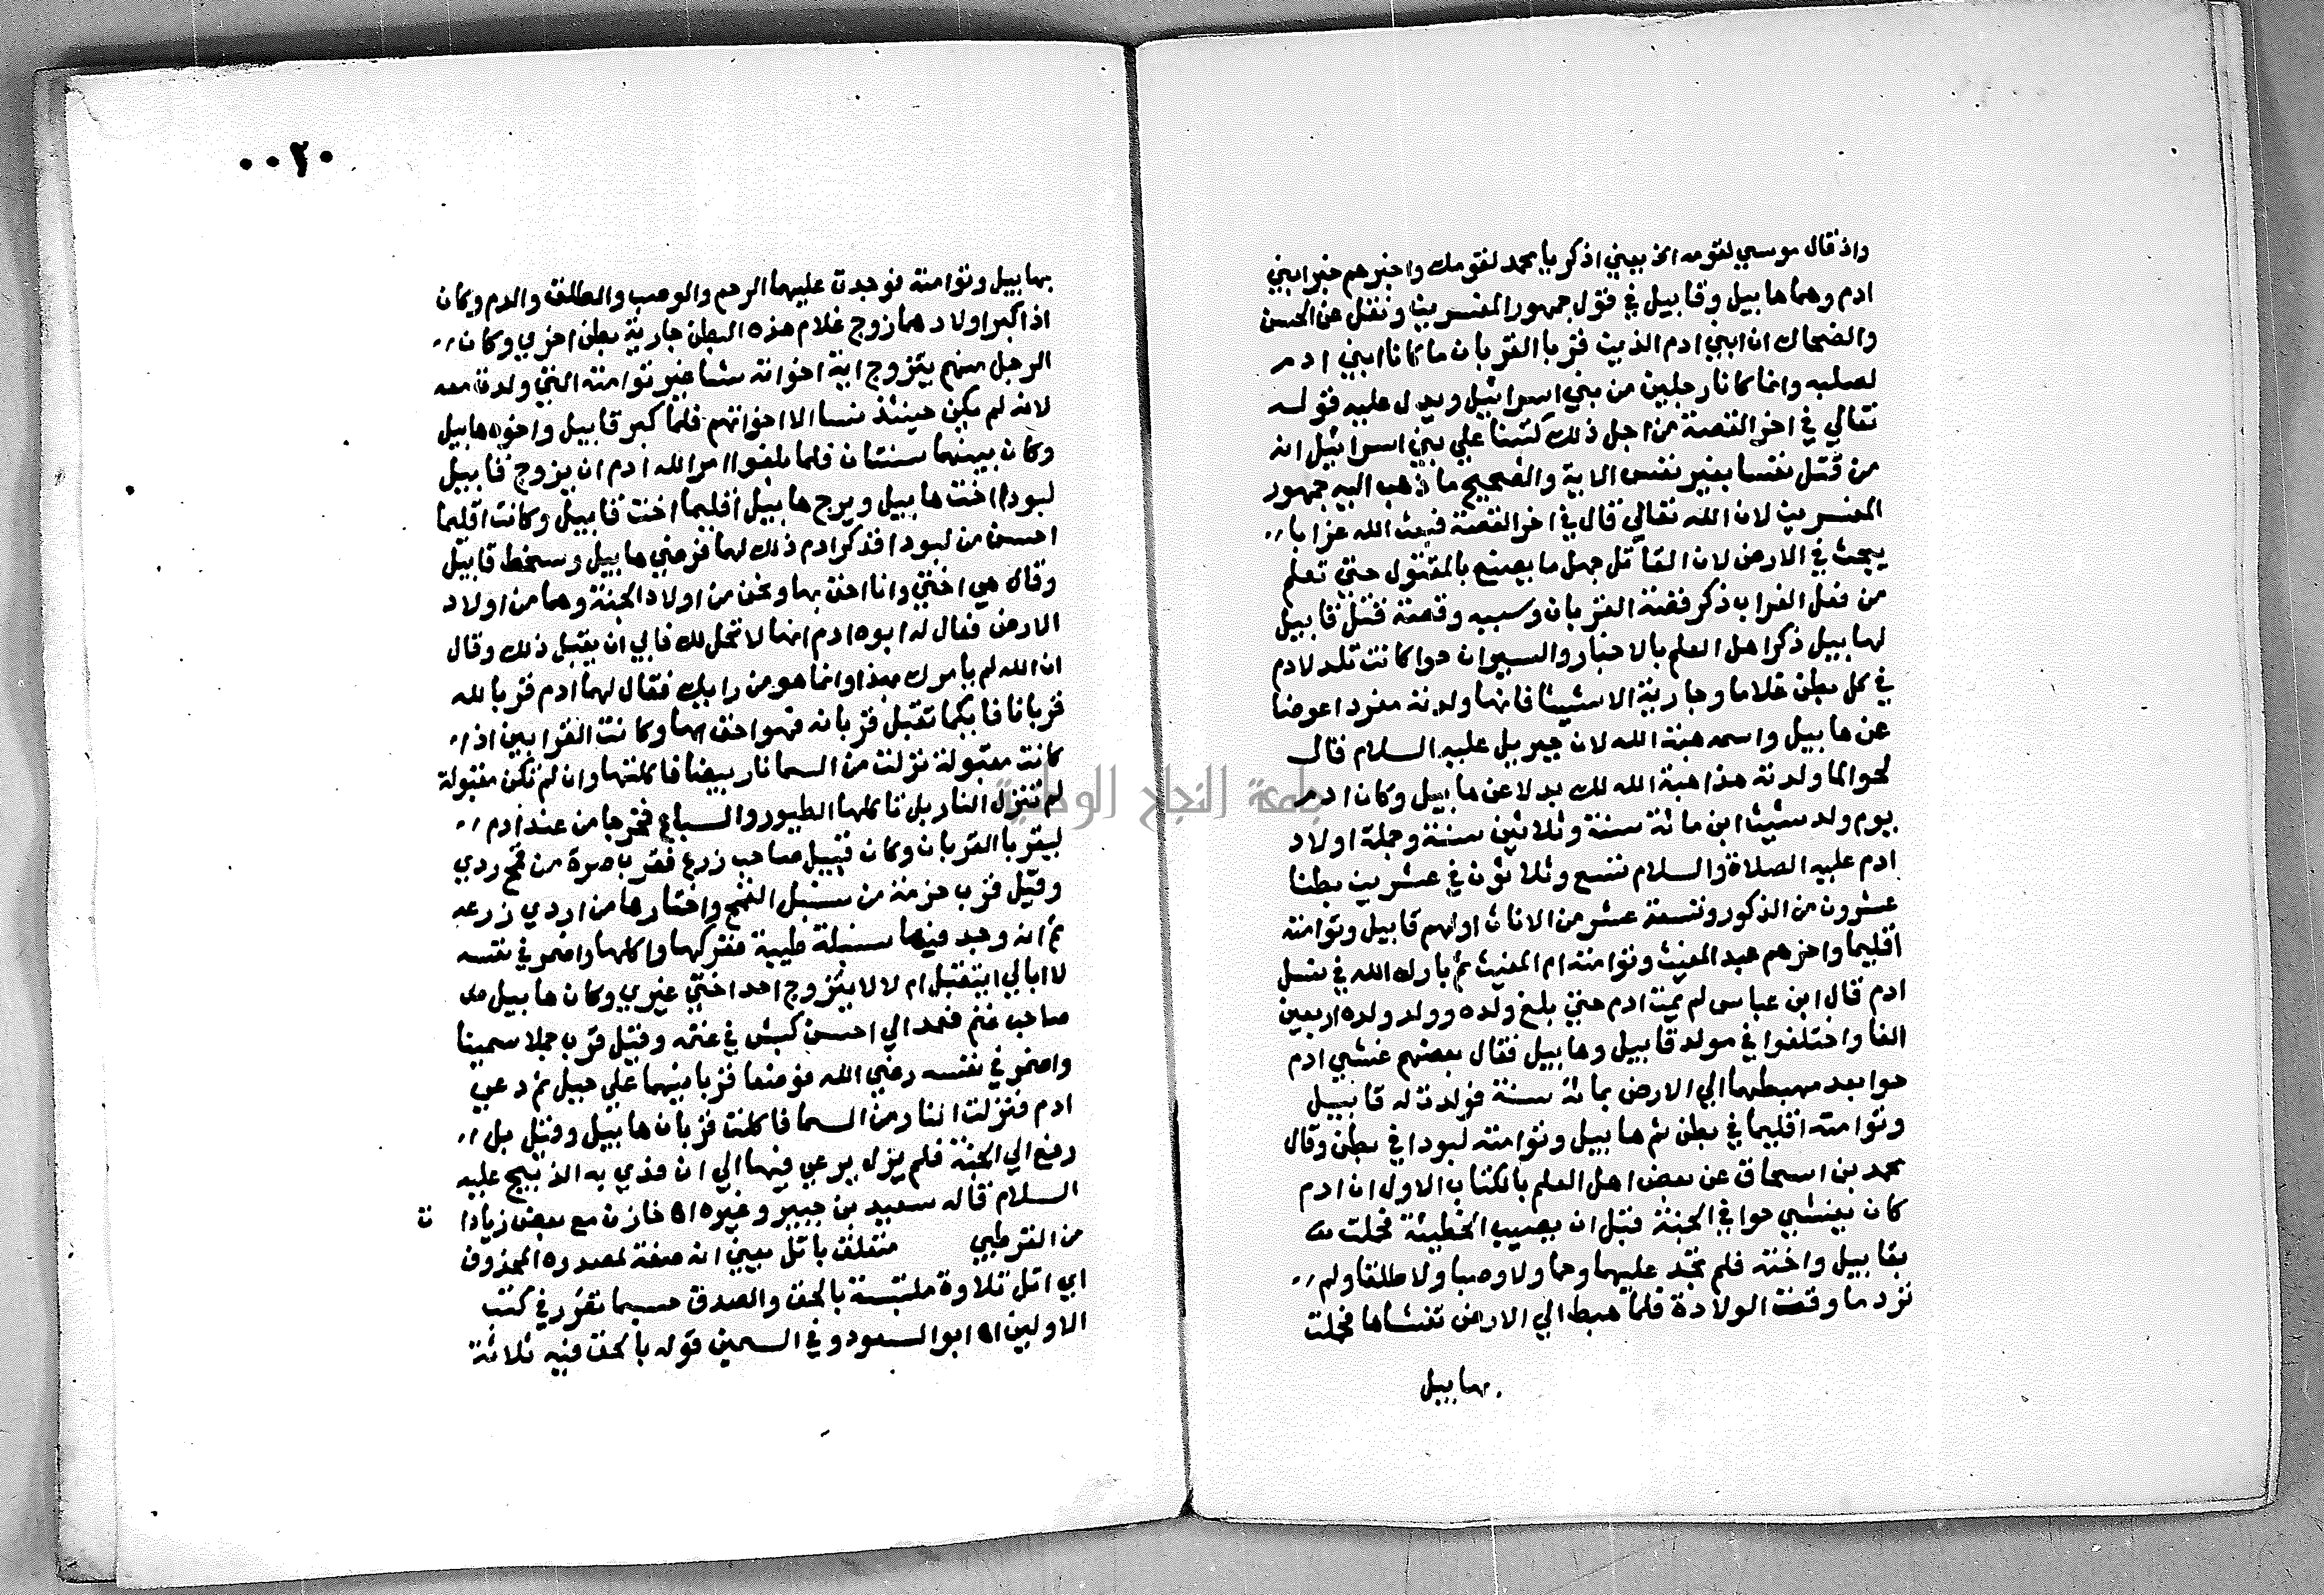 واذ قال موسي لقومه الخ يعني اذكر يا محمد لقومك واخبرهم خبر ابني
ادم وهما هابيل وقابيل في قول جمهور المفسرين ونقل عن الحسن
والضحاك ان ابني ادم الذين قربا القربان ما كانا ابني ادم
لصلبه وانما كانا رجلين من بني اسرائيل ويدل عليه قوله
تعالي في اخر القصة من اجل ذلك كتبنا علي بني اسرائيل انه
من قتل نفسا بغير نفس الاية والصحيح ما ذهب اليه جمهور
المفسرين لان الله تعالي قال في اخر القصة فبعث الله غرابا
يبحث في الارض لان القاتل جهل ما يصنع بالمقتول حتي تعلم
من فعل الغراب ذكر قصة القربان وسببه وقصة قتل قابيل
لهابيل ذكر اهل العلم بالاخبار والسير ان حوا كانت تلد لادم
في كل بطن غلاما وجارية الا شيثا فانها ولدته مفردا عوضا
عن هابيل واسمه هبة الله لان جبريل عليه السلام قال
لحوا لما ولدته هذا هبة الله لك بدلا عن هابيل وكان ادم
يوم ولد شيث ابن مائة سنة وثلاثين سنة وجملة اولاد
ادم عليه الصلاة والسلام تسع وثلاثون في عشرين بطنا
عشرون من الذكور وتسعة عشر من الاناث اولهم قابيل وتوامته
اقليما واخرهم عبد المغيث وتوامته ام المغيث ثم بارك الله في نسل
ادم قال ابن عباس لم يمت ادم حتي بلغ ولده وولد ولده اربعين
الفا واختلفوا في مولد قابيل وهابيل فقال بعضهم غشي ادم
حوا بعد مهبطهما الي الارض بمائة سنة فولدت له قابيل
وتوامته اقليما في بطن ثم هابيل وتوامته لبودا في بطن وقال
محمد بن اسحاق عن بعض اهل العلم بالكتاب الاول ان ادم
كان يغشي حوا في الجنة قبل ان يصيب الخطيئة فحملت
بقابيل واخته فلم تجد عليهما وحما ولا وصبا ولا طلقا ولم
ترد ما وقت الولادة فلما هبط الي الارض تغشاها فحملت
بهابيل
٠٠٢٠
بهابيل وتوامته فوجدت عليهما الوحم والوصب والطلق والدم وكان
اذا كبر اولادهما زوج غلام هذه البطن جارية بطن اخري وكان
الرجل منهم يتزوج اية اخواته شا غير توامته التي ولدت معه
لانه لم يكن حينئذ نسا الا اخواتهم فلما كبر قابيل واخوه هابيل
وكان بينهما سنتان فلما بلغوا امر الله ادم ان يزوج قابيل
لبودا اخت هابيل ويزج هابيل اقليما اخت قابيل وكانت اقليما
احسن من لبودا فذكر ادم ذلك لهما فرضي هابيل وسخط قابيل
وقال هي اختي وانا احق بها ونحن من اولاد الجنة وهما من اولاد
الارض فقال له ابوه ادم انها لا تحل لك فابي ان يقبل ذلك وقال
ان الله لم يامرك بهذا وانما هو من رايك فقال لهما ادم قربا لله
قربانا فايكما تقبل قربانه فهو احق بها وكانت القرابين اذا
كانت مقبولة نزلت من السما نار بيضا فاكلتها وان لم تكن مقبولة
لم تنزل النار بل تاكلها الطيور والسباع فخرجا من عند ادم
ليقربا القربان وكان قبيل صاحب زرع فقرب صبرة من قمح ردي
وقيل قرب حزمة من سنبل القمح واختارها من اردي زرعه
ثم انه وجد فيها سنبلة طيبة ففركها واكلها واضمر في نفسه
لا ابالي ايتقبل ام لا لا يتزوج احد اختي غيري وكان هابيل
صاحب غنم فعمد الي احسن كبش في غنمه وقيل قرب حملا سمينا
واضمر في نفسه رضي الله فوضعا قربا بينهما علي جبل ثم دعي
ادم فنزلت النار من السما فاكلت قربان هابيل وقيل بل
رفع الي الجنة فلم يزل يرعي فيها الي ان فدي به الذبيح عليه
السلام قاله سعيد بن جبير وغيره اه خازن مع بعض زيادات
من القرطبي متعلق باتل يعني انه صفة لمصدره المحذوف
اي اتل تلاوة ملتبسة بالحق والصدق حسبما تقرر في كتب
الاولين اه ابو السعود وفي السمين قوله بالحق فيه ثلاثة
جامعة النجاح الوطنية